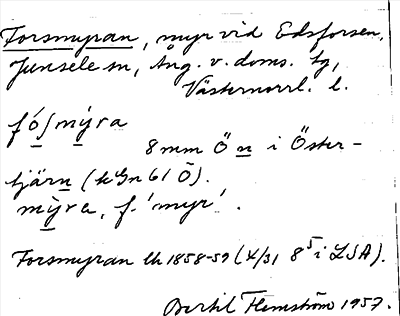 Forsmyran, myr vid Edsforsen,
Junsele sn, Ång. v. doms. tg,
Västernorrl. l.
fó∫mýra
8 mm Ö n i Öster-
tjärn (kGn 61 Ö).
mỳra, f. 'myr'.
Forsmyran lh 1858-59 (4/31 8⁵ i LSA).
Bertil Flemström 1957.